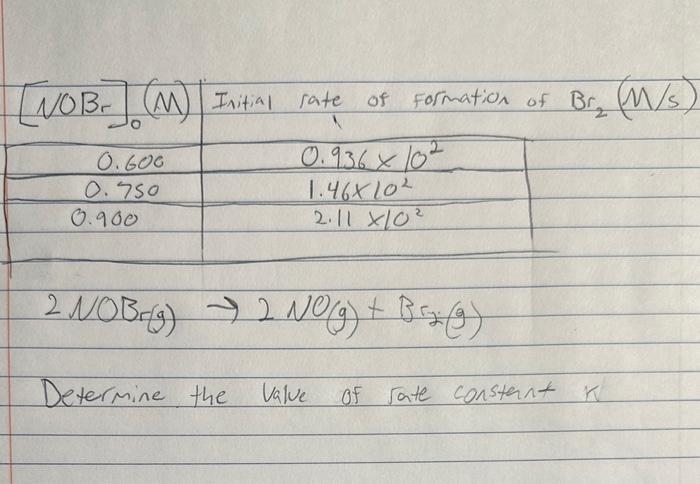 [NOBr]₀ (M) Initial rate of Formation of Br₂ (M/s)
0.600 0.936 x 10²
0.750 1.46x10²
0.900 2.11 x10²
2 NOBr(g) → 2 NO(g) + Br₂(g)
Determine the Value of rate constant k